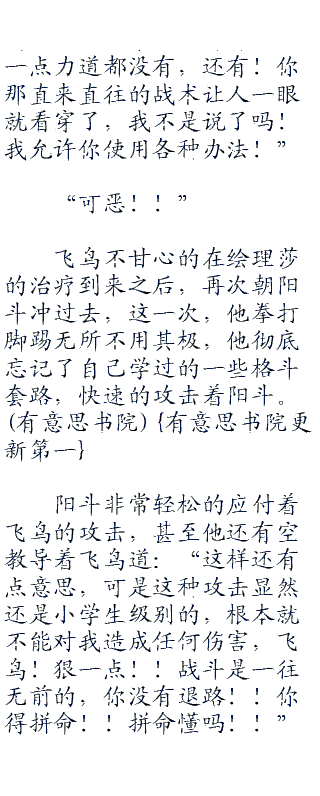 一点力道都没有，还有！你
那直来直往的战术让人一眼
就看穿了，我不是说了吗！
我允许你使用各种办法！”
“可恶！！”
飞鸟不甘心的在绘理莎
的治疗到来之后，再次朝阳
斗冲过去，这一次，他拳打
脚踢无所不用其极，他彻底
忘记了自己学过的一些格斗
套路，快速的攻击着阳斗。
(有意思书院) {有意思书院更
新第一}
阳斗非常轻松的应付着
飞鸟的攻击，甚至他还有空
教导着飞鸟道：“这样还有
点意思，可是这种攻击显然
还是小学生级别的，根本就
不能对我造成任何伤害，飞
鸟！狠一点！！战斗是一往
无前的，你没有退路！！你
得拼命！！拼命懂吗！！”